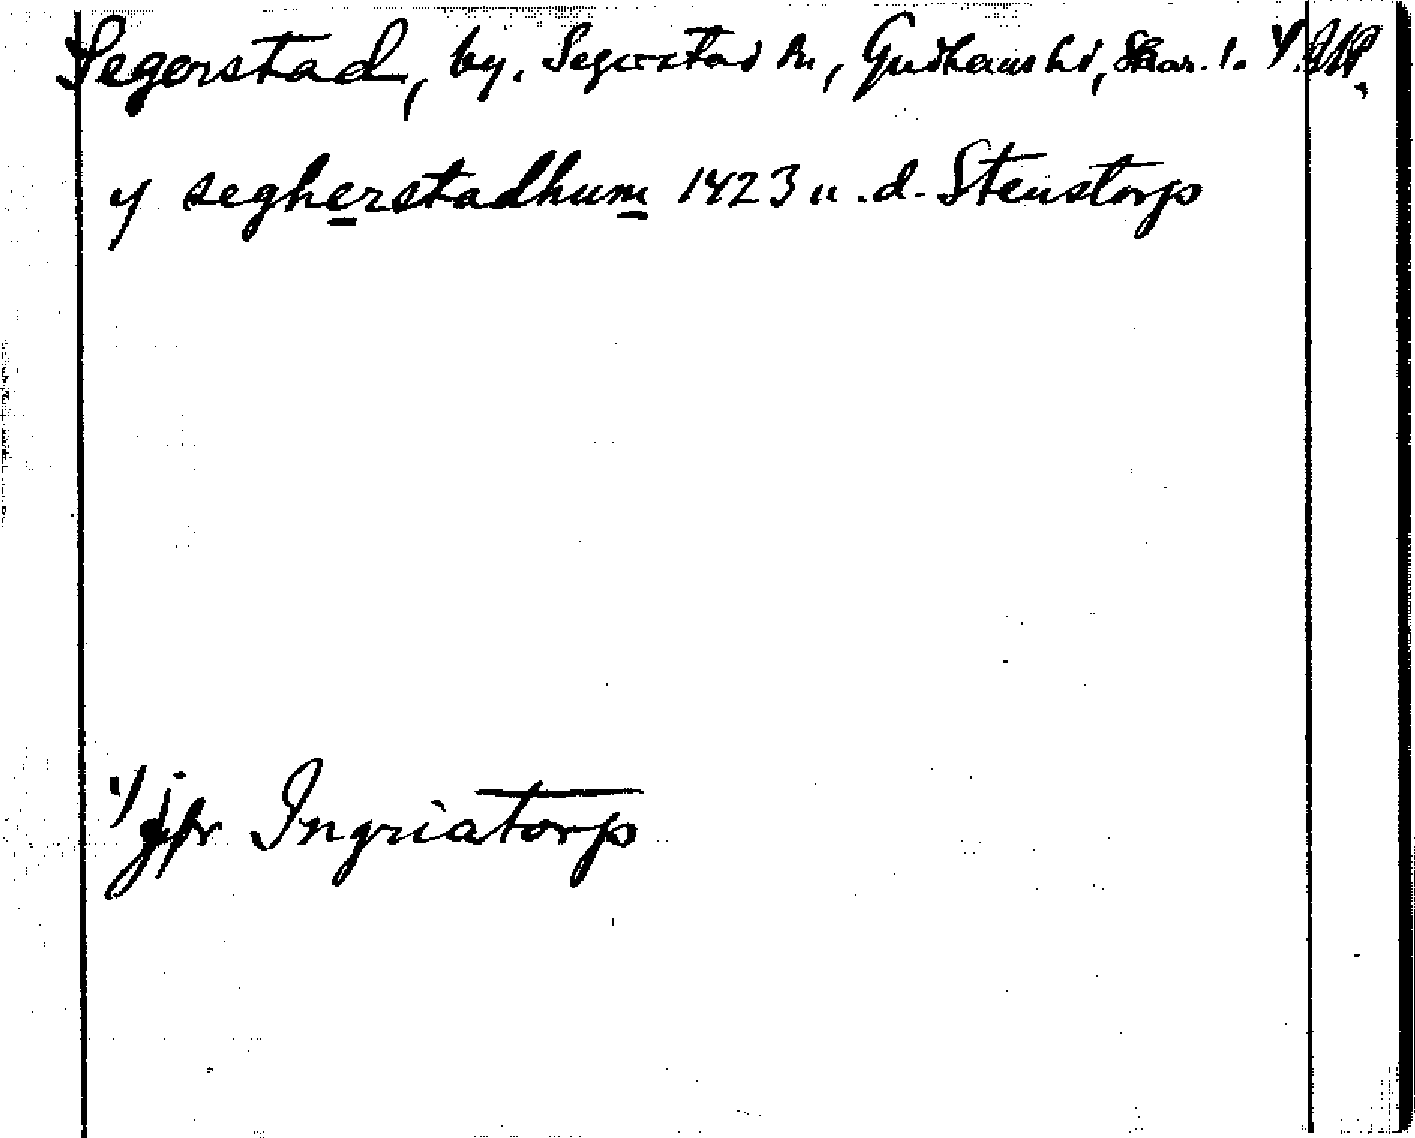 Segerstad, by, Segerstad sn, Gudhems hd, Skar. l. 1)
y segherstadhum 1423 u. d. Stenstorp
1) jfr Ingriatorp